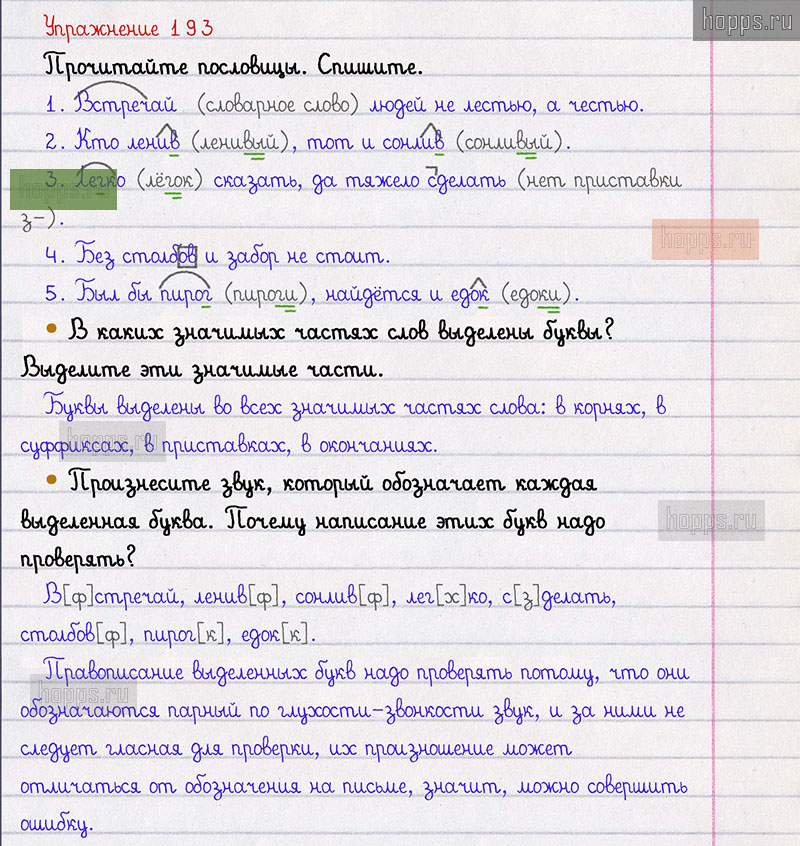 hopps.ru
Упражнение 193
Прочитайте пословицы. Спишите.
1. Встречай (словарное слово) людей не лестью, а честью.
2. Кто ленив (ленивый), тот и сонлив (сонливый).
3. Легко (лёгок) сказать, да тяжело сделать (нет приставки
hopps.ru
з-).
hopps.ru
4. Без столбов и забор не стоит.
5. Был бы пирог (пироги), найдётся и едок (едоки).
• В каких значимых частях слов выделены буквы?
Выделите эти значимые части.
Буквы выделены во всех значимых частях слова: в корнях, в
суффиксах, в приставках, в окончаниях.
hopps.ru
• Произнесите звук, который обозначает каждая
выделенная буква. Почему написание этих букв надо
hopps.ru
проверять?
В[ф]стречай, ленив[ф], сонлив[ф], лег[х]ко, с[з]делать,
столбов[ф], пирог[к], едок[к].
Правописание выделенных букв надо проверять потому, что они
hopps.ru
обозначаются парный по глухости-звонкости звук, и за ними не
следует гласная для проверки, их произношение может
отличаться от обозначения на письме, значит, можно совершить
ошибку.